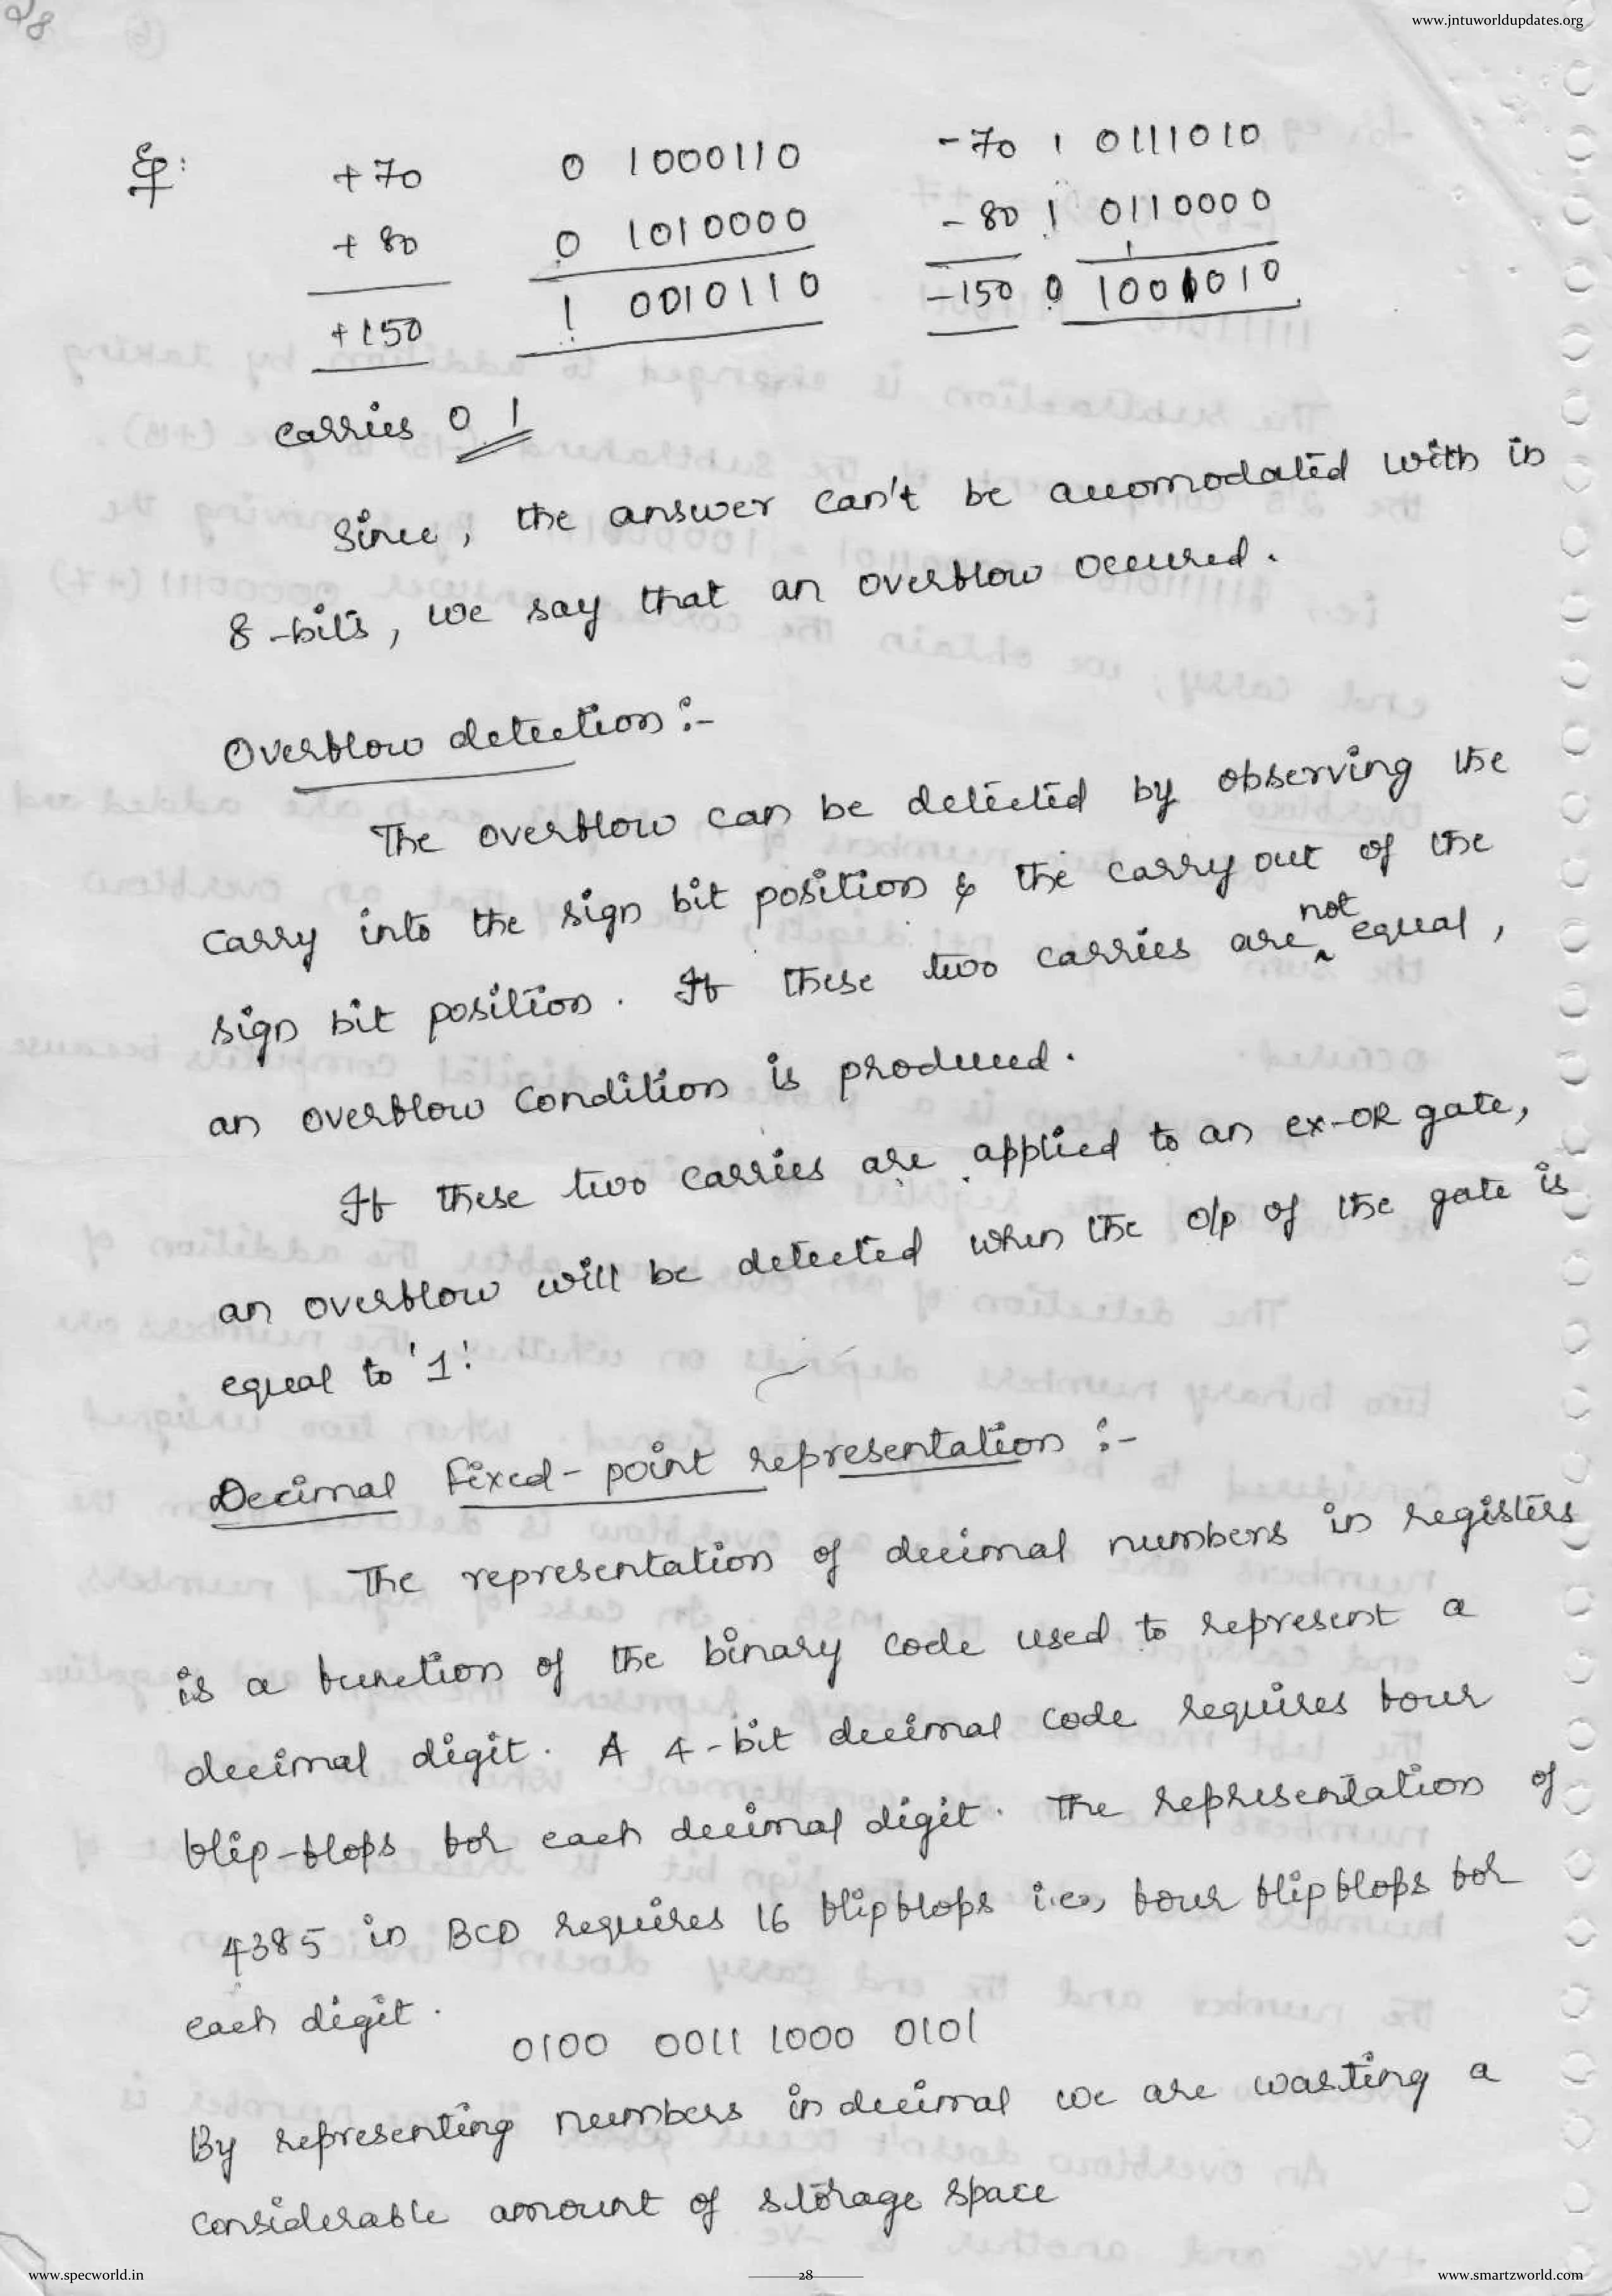 28
www.jntuworldupdates.org
Eg:
+70 0 1000110 -70 1 0111010
+80 0 1010000 -80 1 0110000
1
+150 1 0010110 -150 0 1001010
carries 0 1
Since, the answer can't be auomodated with in
8-bits, we say that an overflow occured.
Overflow detection :-
The overflow can be detected by observing the
carry into the sign bit position & the carry out of the
sign bit position. If these two carries are not equal,
an overflow condition is produced.
If these two carries are applied to an ex-OR gate,
an overflow will be detected when the o/p of the gate is
equal to '1'.
Decimal fixed-point representation :-
The representation of decimal numbers in registers
is a function of the binary code used to represent a
decimal digit. A 4-bit decimal code requires four
flip-flops for each decimal digit. The representation of
4385 in BCD requires 16 flipflops i.e., four flipflops for
each digit.
0100 0011 1000 0101
By representing numbers in decimal we are wasting a
considerable amount of storage space
www.specworld.in
28
www.smartzworld.com